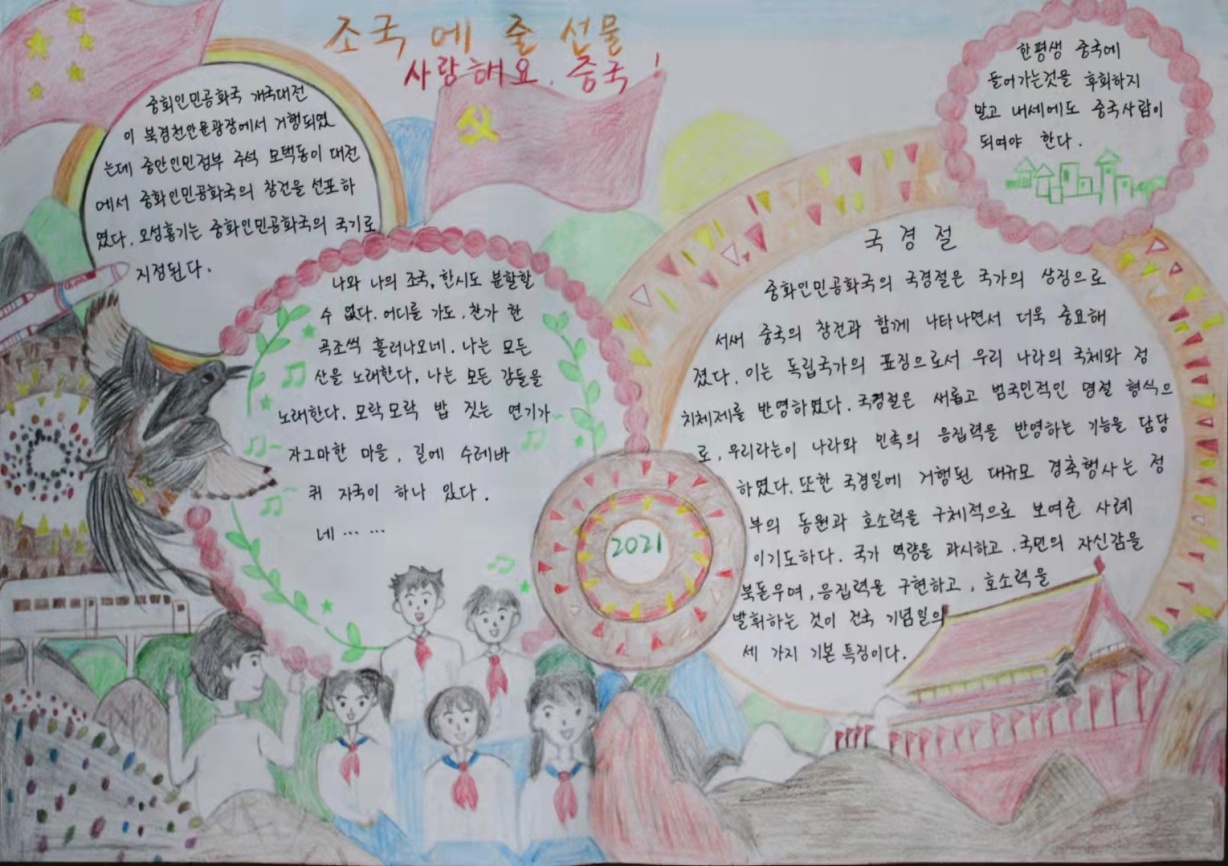 조국에 줄 선물
사랑해요, 중국!
중화인민공화국 개국대전
이 북경천안문광장에서 거행되였
는데 중앙인민정부 주석 모택동이 대전
에서 중화인민공화국의 창건을 선포하
였다. 오성홍기는 중화인민공화국의 국기로
지정된다.
나와 나의 조국, 한시도 분할할
수 없다. 어디를 가도, 찬가 한
곡조씩 흘러나오네. 나는 모든
산을 노래한다, 나는 모든 강들을
노래한다. 모락모락 밥 짓는 연기가
자그마한 마을, 길에 수레바
퀴 자국이 하나 있다.
네……
2021
한평생 중국에
들어가는것을 후회하지
말고 내세에도 중국사람이
되여야 한다.
국경절
중화인민공화국의 국경절은 국가의 상징으로
서새 중국의 창건과 함께 나타나면서 더욱 중요해
졌다. 이는 독립국가의 표징으로서 우리 나라의 국체와 정
치체제를 반영하였다. 국경절은 새롭고 범국민적인 명절 형식으
로, 우리라는이 나라와 민족의 응집력을 반영하는 기능을 담당
하였다. 또한 국경일에 거행된 대규모 경축행사는 정
부의 동원과 호소력을 구체적으로 보여준 사례
이기도하다. 국가 역량을 과시하고, 국민의 자신감을
북돋우며, 응집력을 구현하고, 호소력을
발휘하는 것이 건국 기념일의
세 가지 기본 특징이다.